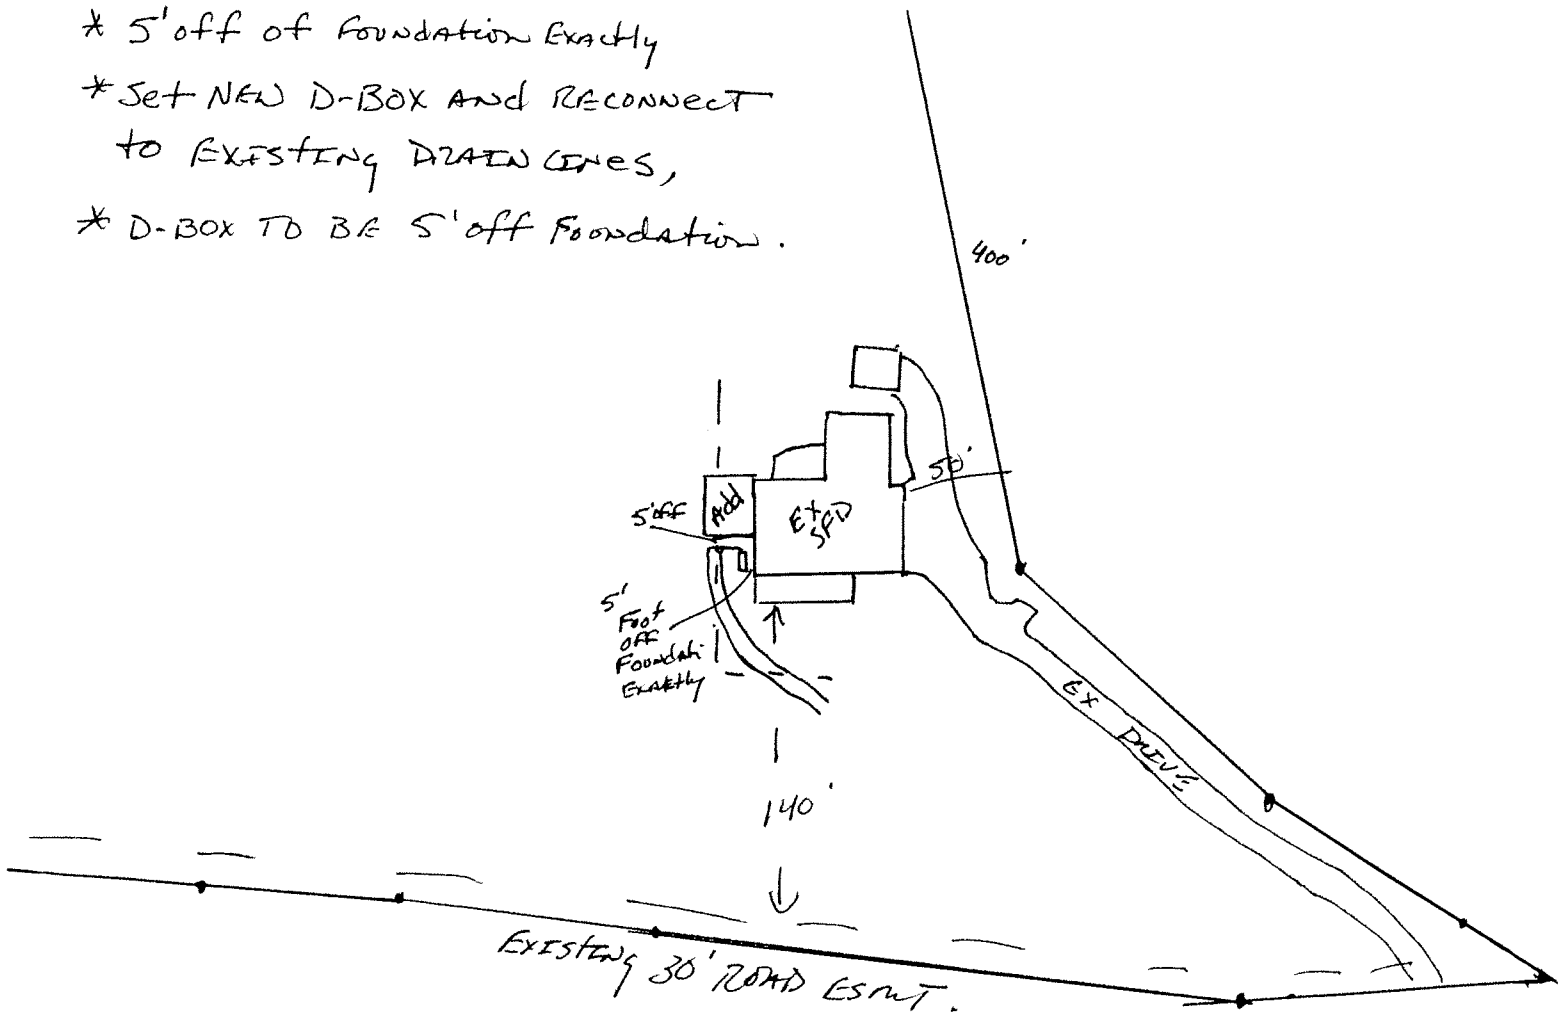 * 5' off of Foundation Exactly
* Set NEW D-BOX AND RECONNECT
to EXISTING DRAIN LINES,
* D-BOX TO BE 5' off Foundation.
400'
50'
Add
EX
SFD
5' off
5'
Foot
OFF
Foundati
Exactly
EX DRIVE
140'
EXISTING 30' ROAD ESMT.